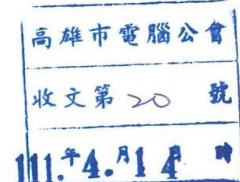 高雄市電腦公會
收文第20號
111.年4.月14日 時